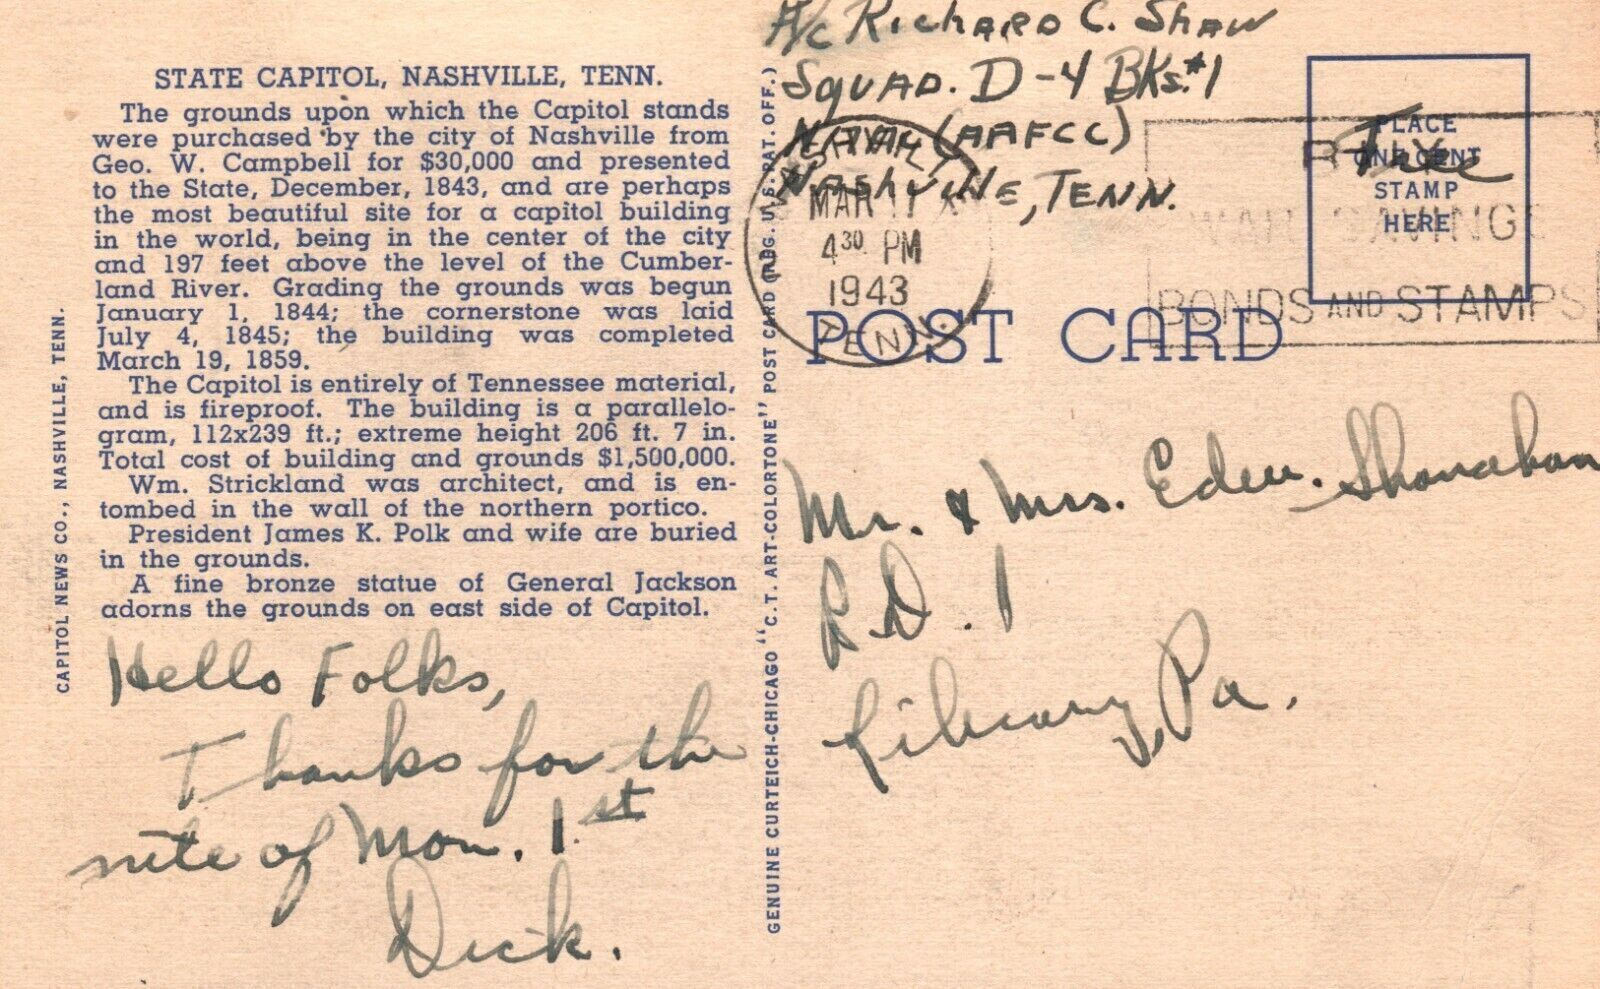 STATE CAPITOL, NASHVILLE, TENN.
The grounds upon which the Capitol stands
were purchased by the city of Nashville from
Geo. W. Campbell for $30,000 and presented
to the State, December, 1843, and are perhaps
the most beautiful site for a capitol building
in the world, being in the center of the city
and 197 feet above the level of the Cumber-
land River. Grading the grounds was begun
January 1, 1844; the cornerstone was laid
July 4, 1845; the building was completed
March 19, 1859.
The Capitol is entirely of Tennessee material,
and is fireproof. The building is a parallelo-
gram, 112x239 ft.; extreme height 206 ft. 7 in.
Total cost of building and grounds $1,500,000.
Wm. Strickland was architect, and is en-
tombed in the wall of the northern portico.
President James K. Polk and wife are buried
in the grounds.
A fine bronze statue of General Jackson
adorns the grounds on east side of Capitol.
Hello Folks,
Thanks for the
nite of Mon. 1st
Dick.
CAPITOL NEWS CO., NASHVILLE, TENN.
GENUINE CURTEICH-CHICAGO "C. T. ART-COLORTONE" POST CARD (REG. U. S. PAT. OFF.)
A/C Richard C. Shaw
Squad. D-4 Bks.#1
(AAFCC)
Nashville, Tenn.
NASHVILLE
MAR 17
4 30 PM
1943
TENN.
Free
PLACE
ONE CENT
STAMP
HERE
WAR SAVINGS
BONDS AND STAMPS
POST CARD
Mr. & Mrs. Eden. Shanahan
R.D. 1
Library, Pa.